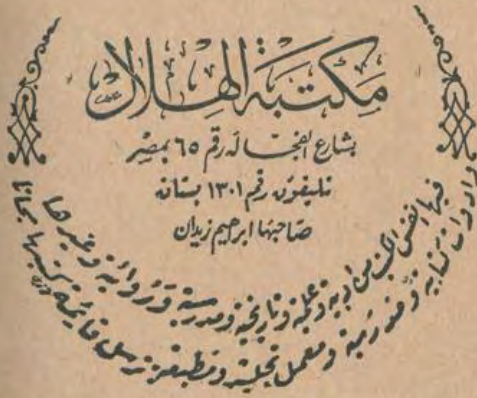 مكتبة الهلال
بشارع الفجالة رقم ٦٥ بمصر
تليفون رقم ١٣٠١ بستان
صاحبها ابرهيم زيدان
فيها انفس الكتب من ادبية وعلمية وتاريخية ومدرسية وروائية وغيرها
وادوات كتابية ومدرسية ومعمل تجليد ومطبعة ترسل قائمة كتبها